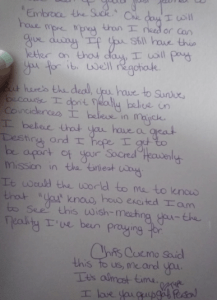 "Embrace the Suck." One day I will
have more money than I need or can
give away. If you still have this
letter on that day, I will pay
you for it. We'll negotiate.
But here's the deal you have to survive
because I don't really believe in
coincidences I believe in Majick
I believe that you have a great
Destiny and I hope I get to
be apart of your Sacred Heavenly
Mission in the tiniest way.
It would the world to me to know
that "you" know how excited I am
to see this wish-meeting you-the
reality I've been praying for.
Chris Cuomo said
this to us, me and you.
It's almost time.
I love you guys